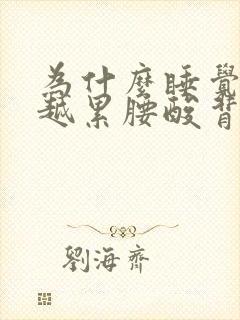 為什麼睡覺
越累腰酸背
劉海齊